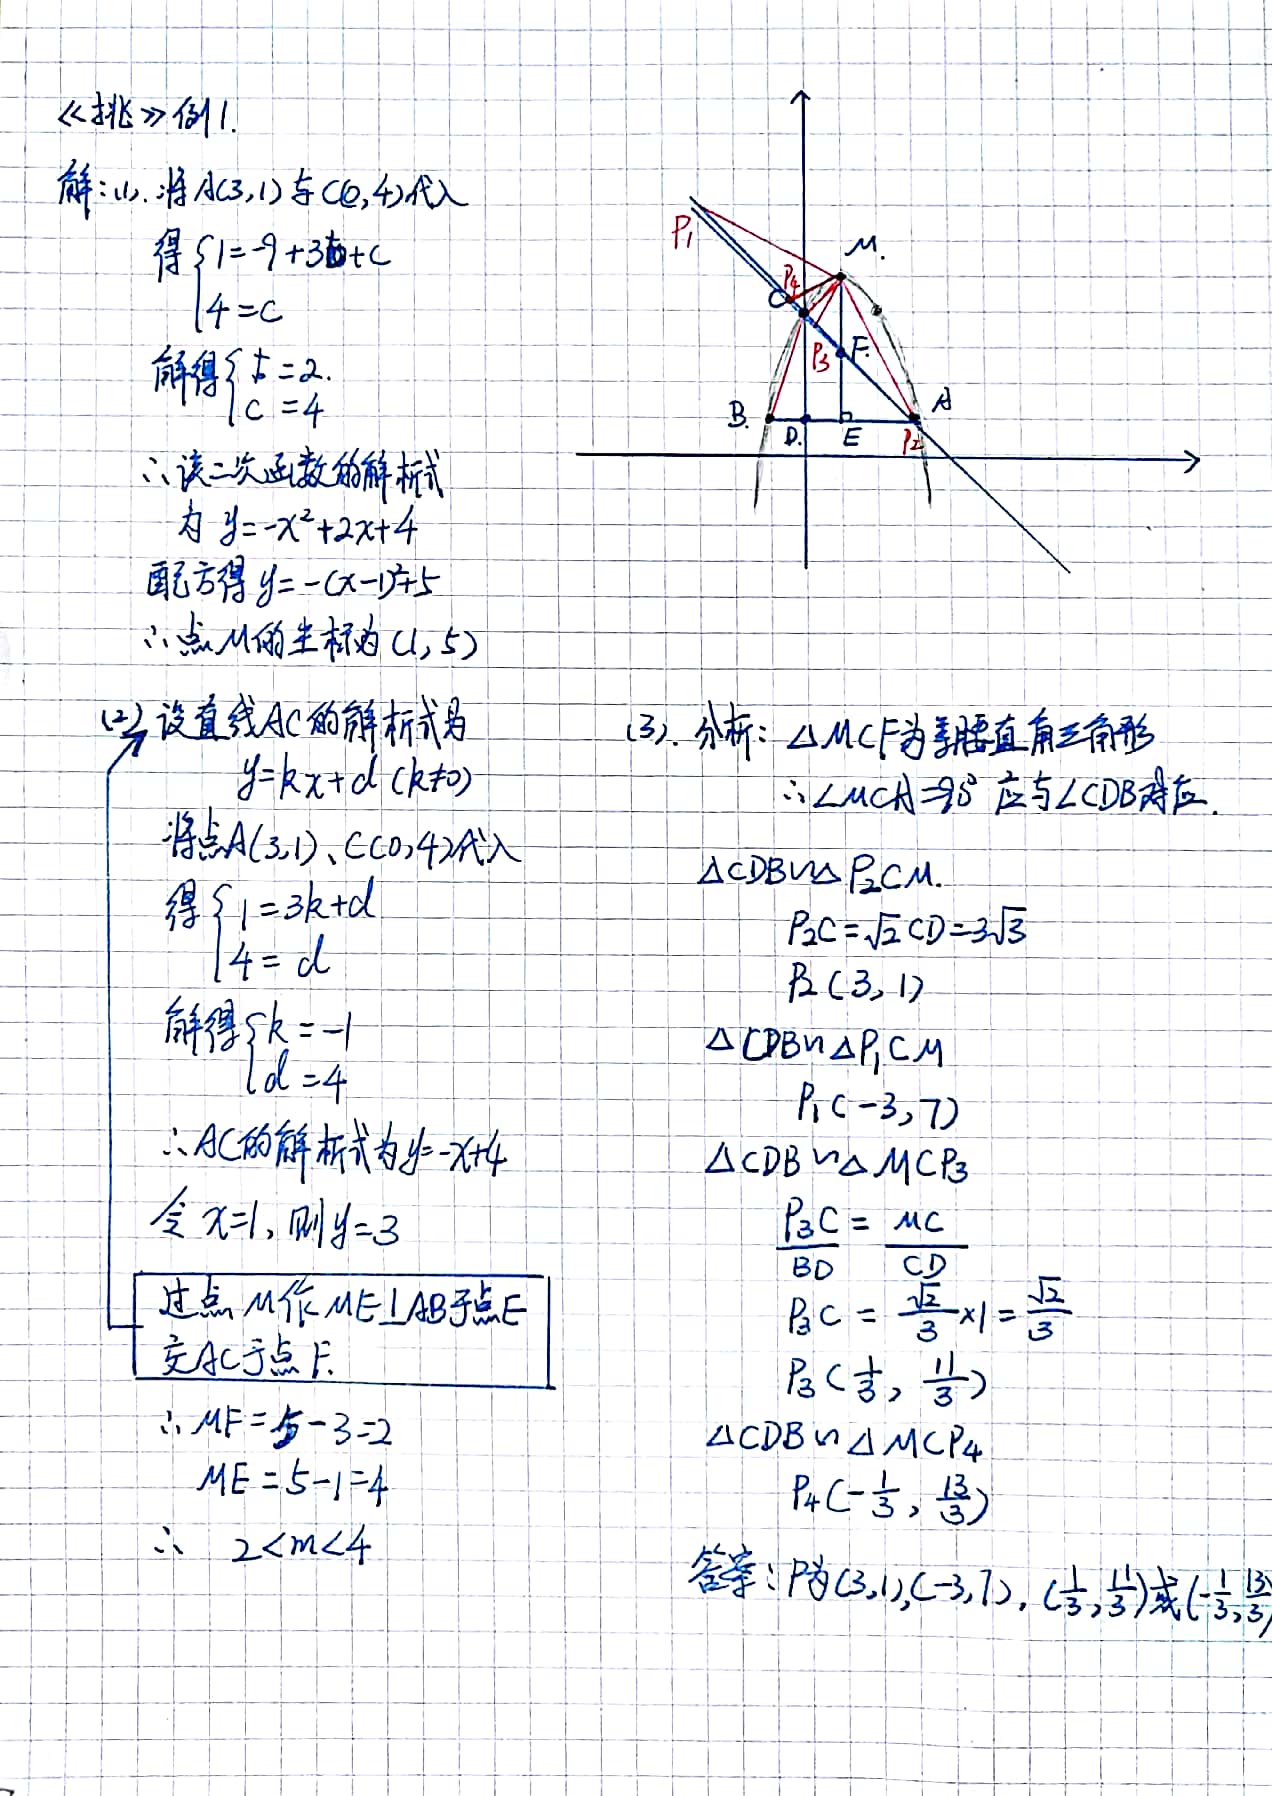 《挑》例1.
解:(1). 将A(3,1)与C(0,4)代入
得{1=-9+3b+c
4=c
解得{b=2.
c=4
∴该二次函数的解析式
为 y=-x²+2x+4
配方得 y=-(x-1)²+5
∴点M的坐标为(1,5)
P1
M.
P4
C
P3
F.
B.
D.
E
A
P2
(2) 设直线AC的解析式为
y=kx+d (k≠0)
将点A(3,1)、C(0,4)代入
得{1=3k+d
4=d
解得{k=-1
d=4
∴AC的解析式为y=-x+4
令 x=1, 则y=3
过点M作ME⊥AB于点E
交AC于点F.
∴MF=5-3=2
ME=5-1=4
∴ 2<m<4
(3). 分析: △MCF为等腰直角三角形
∴∠MCA=90° 应与∠CDB对应.
△CDB∽△P₂CM.
P₂C=√2CD=3√3
P₂(3,1)
△CDB∽△P₁CM
P₁(-3,7)
△CDB∽△MCP₃
P₃C/BD = MC/CD
P₃C = √2/3×1=√2/3
P₃(1/3, 11/3)
△CDB∽△MCP₄
P₄(-1/3, 13/3)
答案: P为(3,1),(-3,7), (1/3,11/3)或(-1/3,13/3)